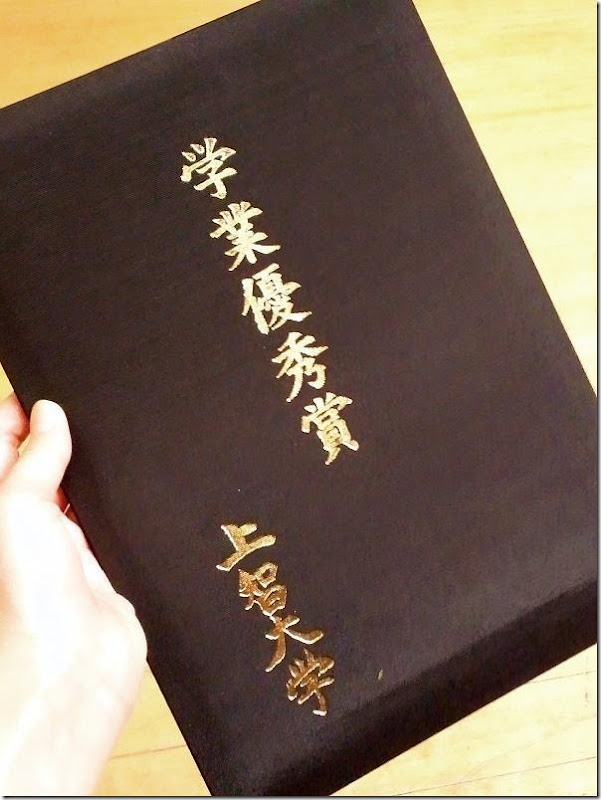 学業優秀賞
上智大学